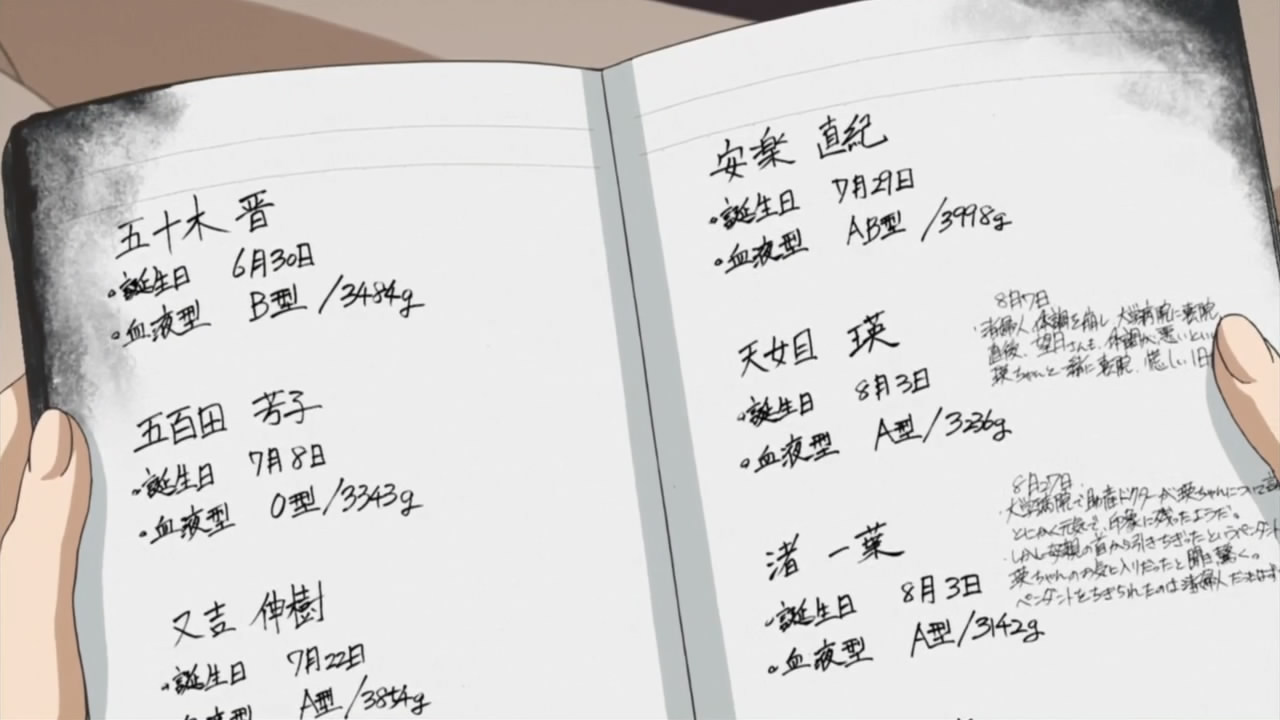 五十木 晋
・誕生日 6月30日
・血液型 B型 /3484g
五百田 芳子
・誕生日 7月8日
・血液型 O型/3343g
又吉 伸樹
・誕生日 7月22日
・血液型 A型/3854g
安楽 直紀
・誕生日 7月29日
・血液型 AB型 /3998g
天女目 瑛
・誕生日 8月3日
・血液型 A型/3236g
8月7日
・渚婦人、体調を崩し、大学病院に転院
直後、望月さんも、体調が悪いといい
葉ちゃんと一緒に転院。慌しい1日
渚 一葉
・誕生日 8月3日
・血液型 A型/3142g
8月27日
・大学病院で助産ドクターが葉ちゃんについて
とにかく元気で、印象に残ったようだ。
・しかし母親の首から引きちぎったというペンダント
葉ちゃんのお気に入りだったと聞き驚く。
ペンダントをちぎられたのは渚婦人だったはず